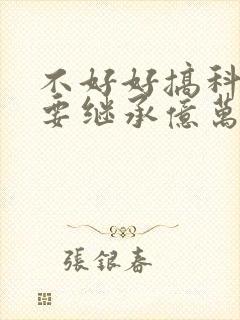 不好好搞科
要继承億萬
張銀春